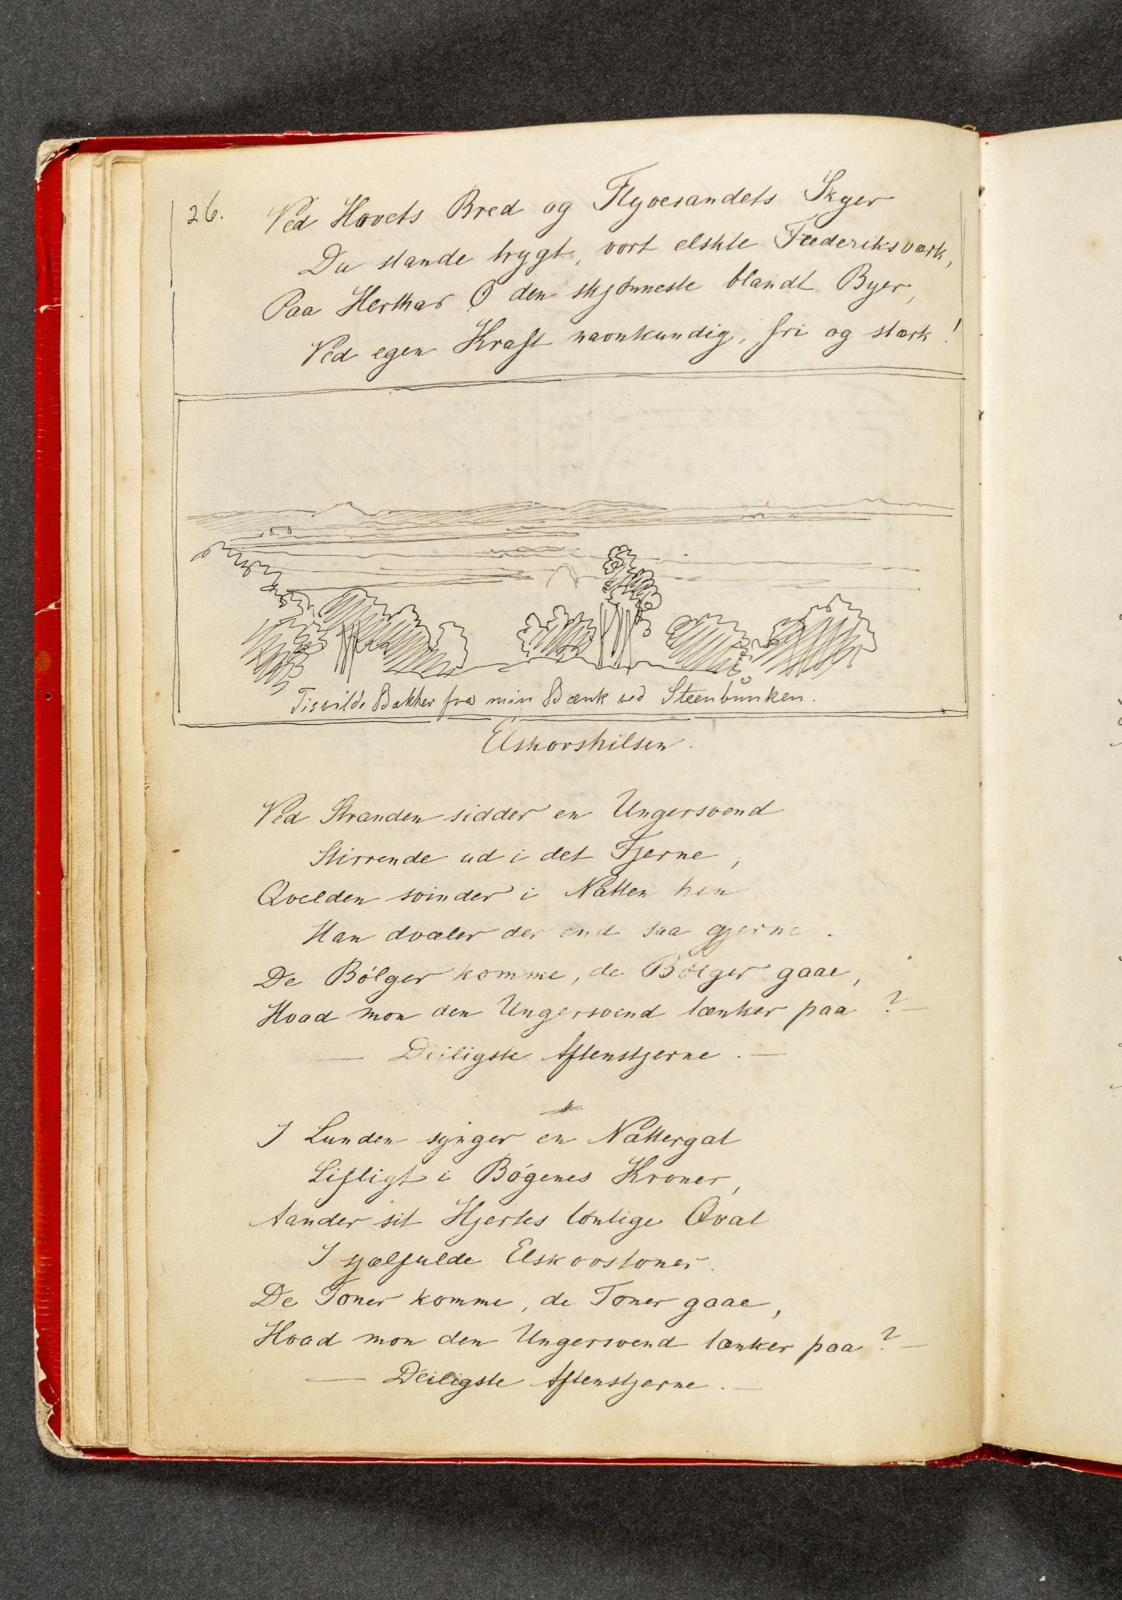 26.
Ved Havets Bred og Flyvesandets Skyer
Du stande trygt, vort elskte Frederiksværk,
Paa Herthas Ø den skjønneste blandt Byer,
Ved egen Kraft navnkundig, fri og stærk!
Tisvilde Bakker fra min Bænk ved Steenbunken.
Elskovshilsen.
Ved Stranden sidder en Ungersvend
Stirrende ud i det Fjerne,
Qvelden svinder i Natten hen
Han dvæler der end saa gjerne.
De Bølger komme, de Bølger gaae,
Hvad mon den Ungersvend tænker paa? —
— Deiligste Aftenstjerne. —
I Lunden synger en Nattergal
Lifligt i Bøgenes Kroner,
Aander sit Hjertes lønlige Qval
I sjælfulde Elskovstoner.
De Toner komme, de Toner gaae,
Hvad mon den Ungersvend tænker paa? —
— Deiligste Aftenstjerne. —